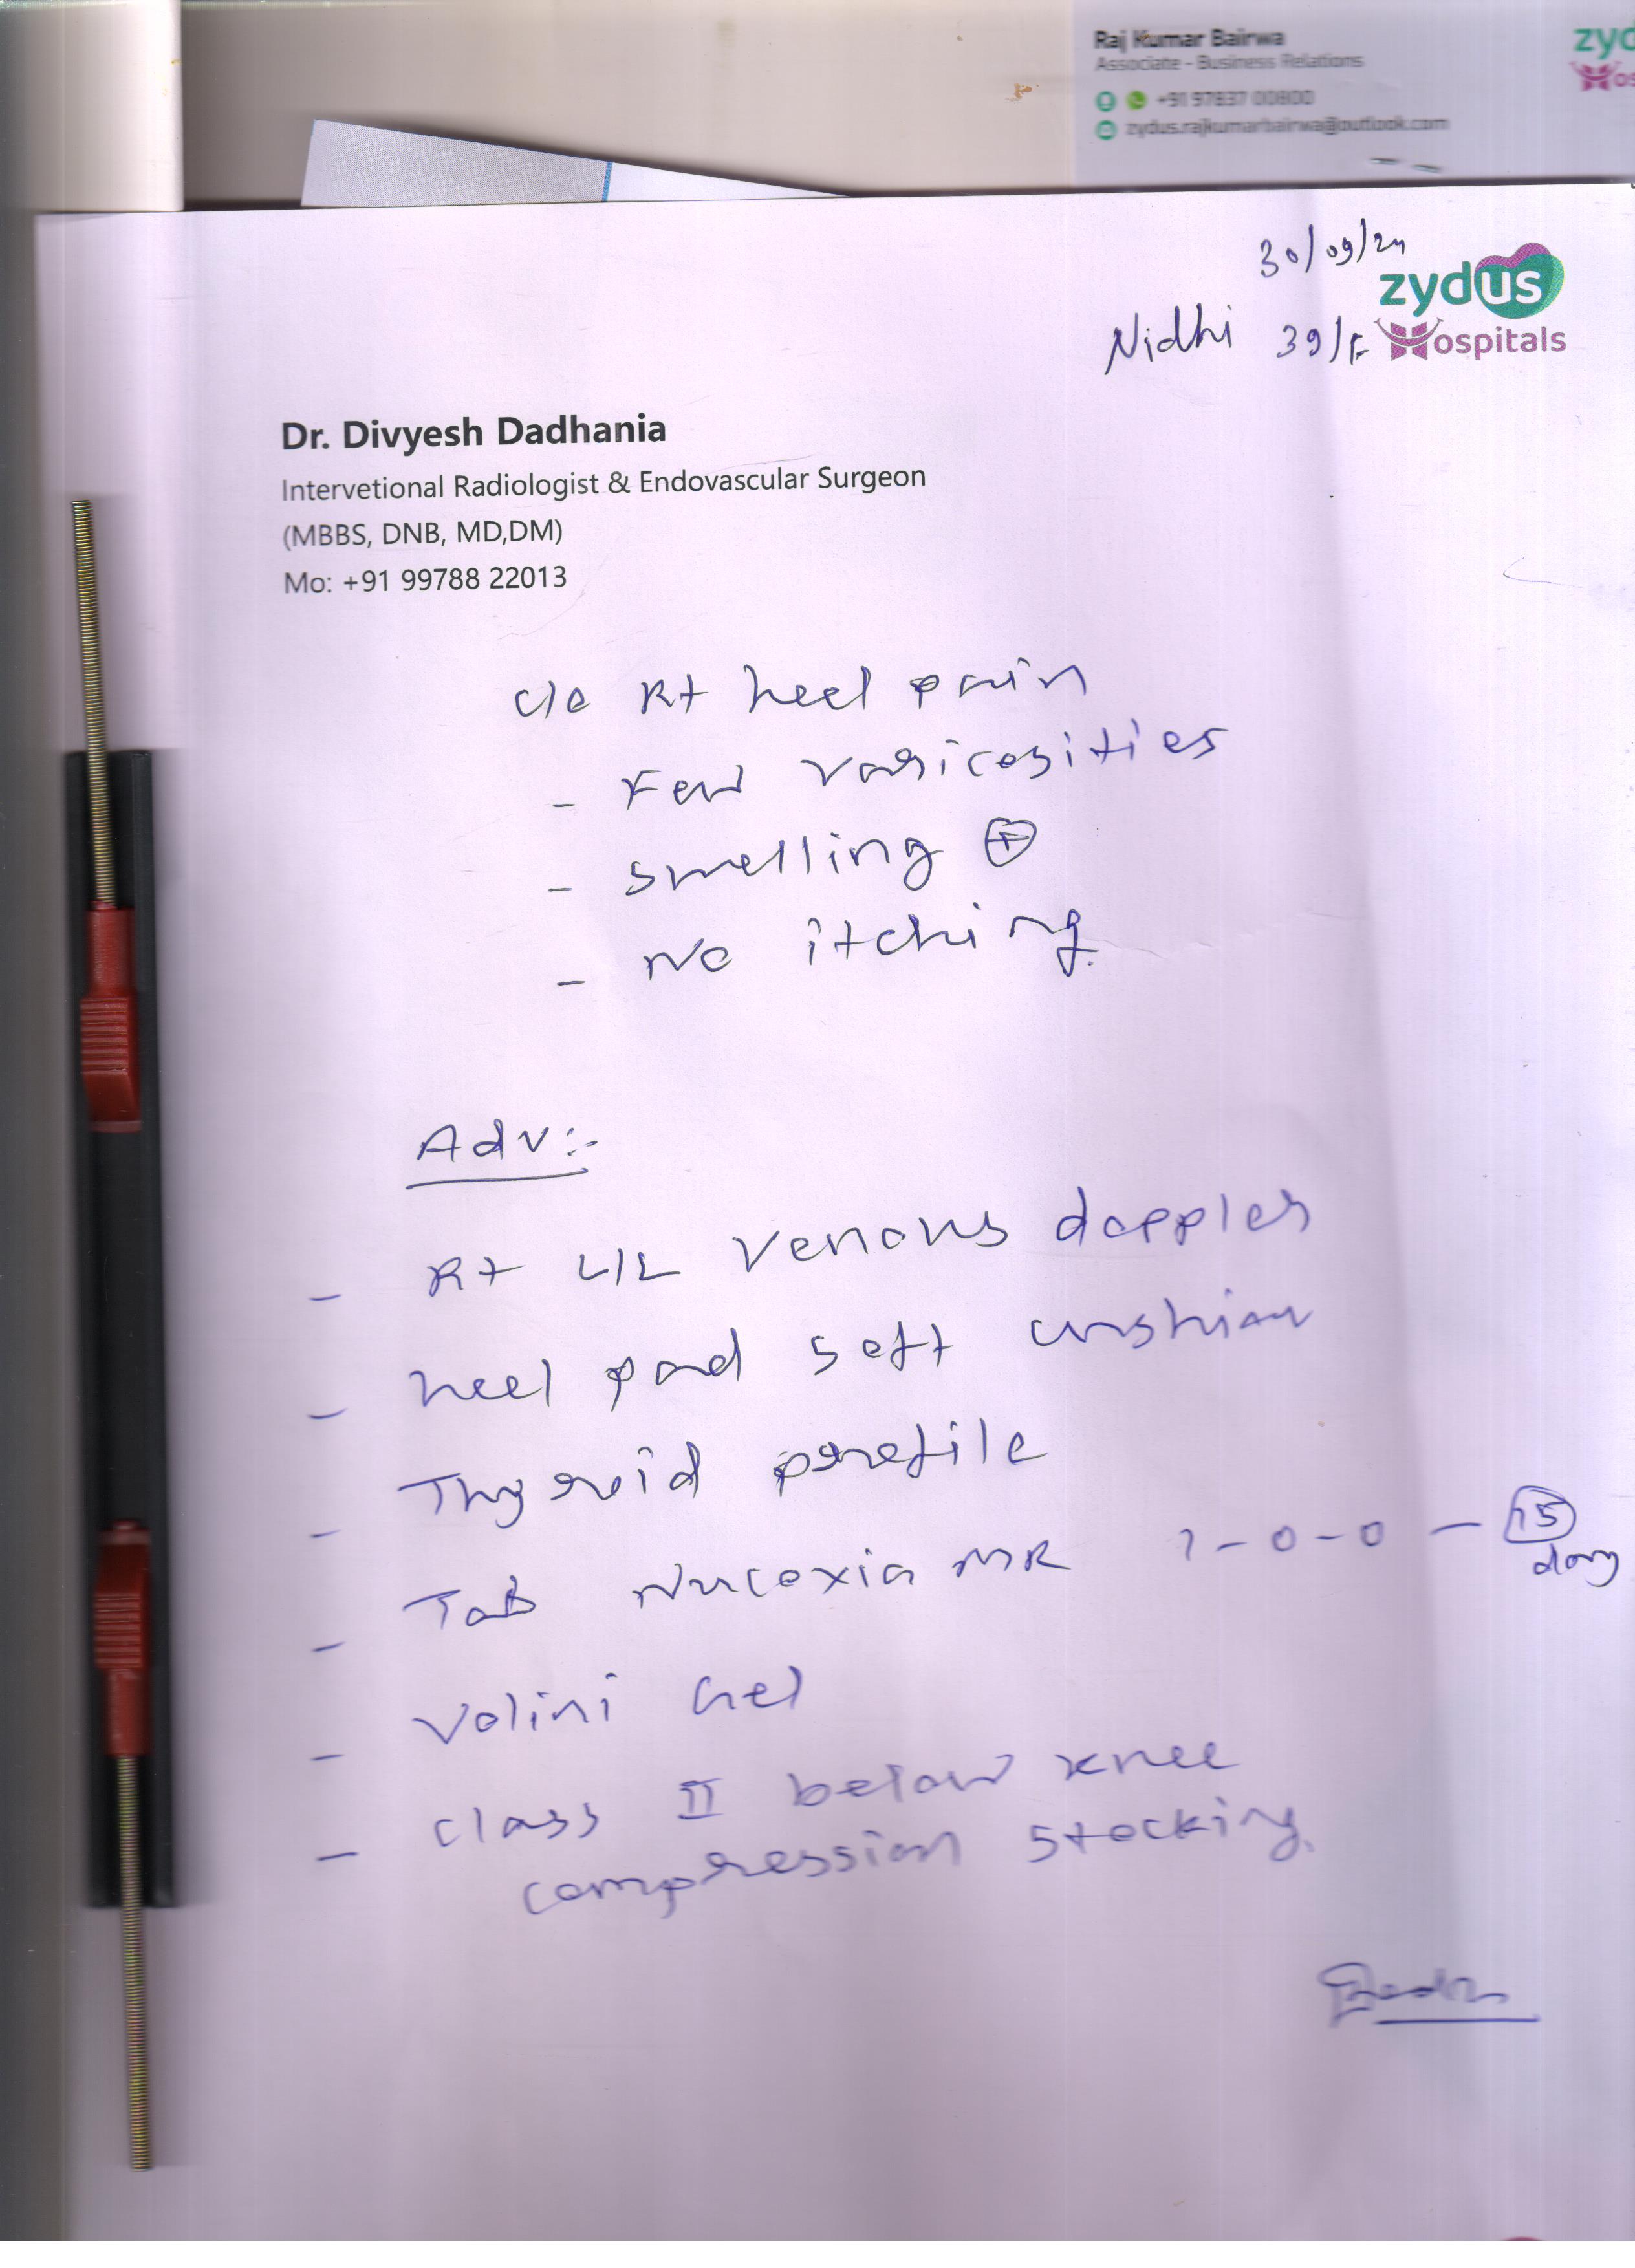 Raj Kumar Bairwa
Associate - Business Relations
+91 97837 00800
zydus.rajkumarbairwa@outlook.com
zyd
Hos
30/09/24
Nidhi 39/F
zydus
Hospitals
Dr. Divyesh Dadhania
Intervetional Radiologist & Endovascular Surgeon
(MBBS, DNB, MD,DM)
Mo: +91 99788 22013
c/o Rt heel pain
- Few varicosities
- swelling ⊕
- No itching.
Adv:-
- Rt L/L venous doppler
- heel pad soft cushion
- Thyroid profile
- Tab Nucoxia MR 1-0-0 - 15 day
- Volini Gel
- class II below knee
compression stocking.